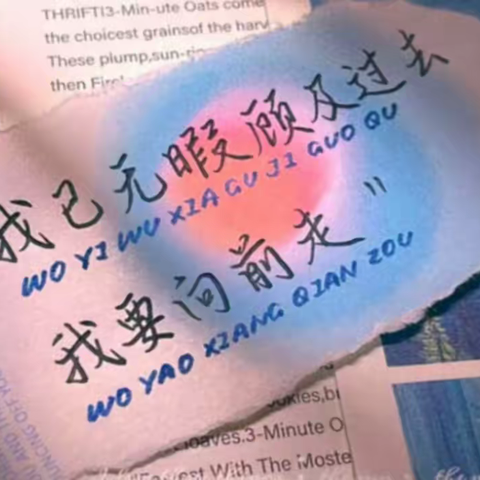 THRIFT!3-Min-ute Oats come
the choicest grainsof the harv
These plump,sun-
then
我已无暇顾及过去
WO YI WU XIA GU JI GUO QU
我要向前走"
WO YAO XIANG QIAN ZOU
oaves.3-Minute O
With The Moste